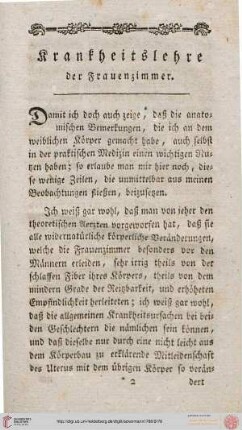 Krankheitslehre
der Frauenzimmer.
Damit ich doch auch zeige, daß die anato-
mischen Bemerkungen, die ich an dem
weiblichen Körper gemacht habe, auch selbst
in der praktischen Medizin einen wichtigen Nu-
zen haben; so erlaube man mir hier noch, die-
se wenige Zeilen, die unmittelbar aus meinen
Beobachtungen fließen, beizufügen.
Ich weiß gar wohl, daß man von jeher den
theoretischen Aerzten vorgeworfen hat, daß sie
alle widernatürliche körperliche Veränderungen,
welche die Frauenzimmer besonders vor den
Männern erleiden, sehr irrig theils von der
schlaffen Fiber ihres Körpers, theils von dem
mindern Grade der Reizbarkeit, und erhöheten
Empfindlichkeit herleiteten; ich weiß gar wohl,
daß die allgemeinen Krankheitsursachen bei bei-
den Geschlechtern die nämlichen sein können, und
daß dieselbe nur durch eine nicht leicht aus
dem Körperbau zu erklärende Mitleidenschaft
des Uterus mit dem übrigen Körper so verän-
* 2 dert